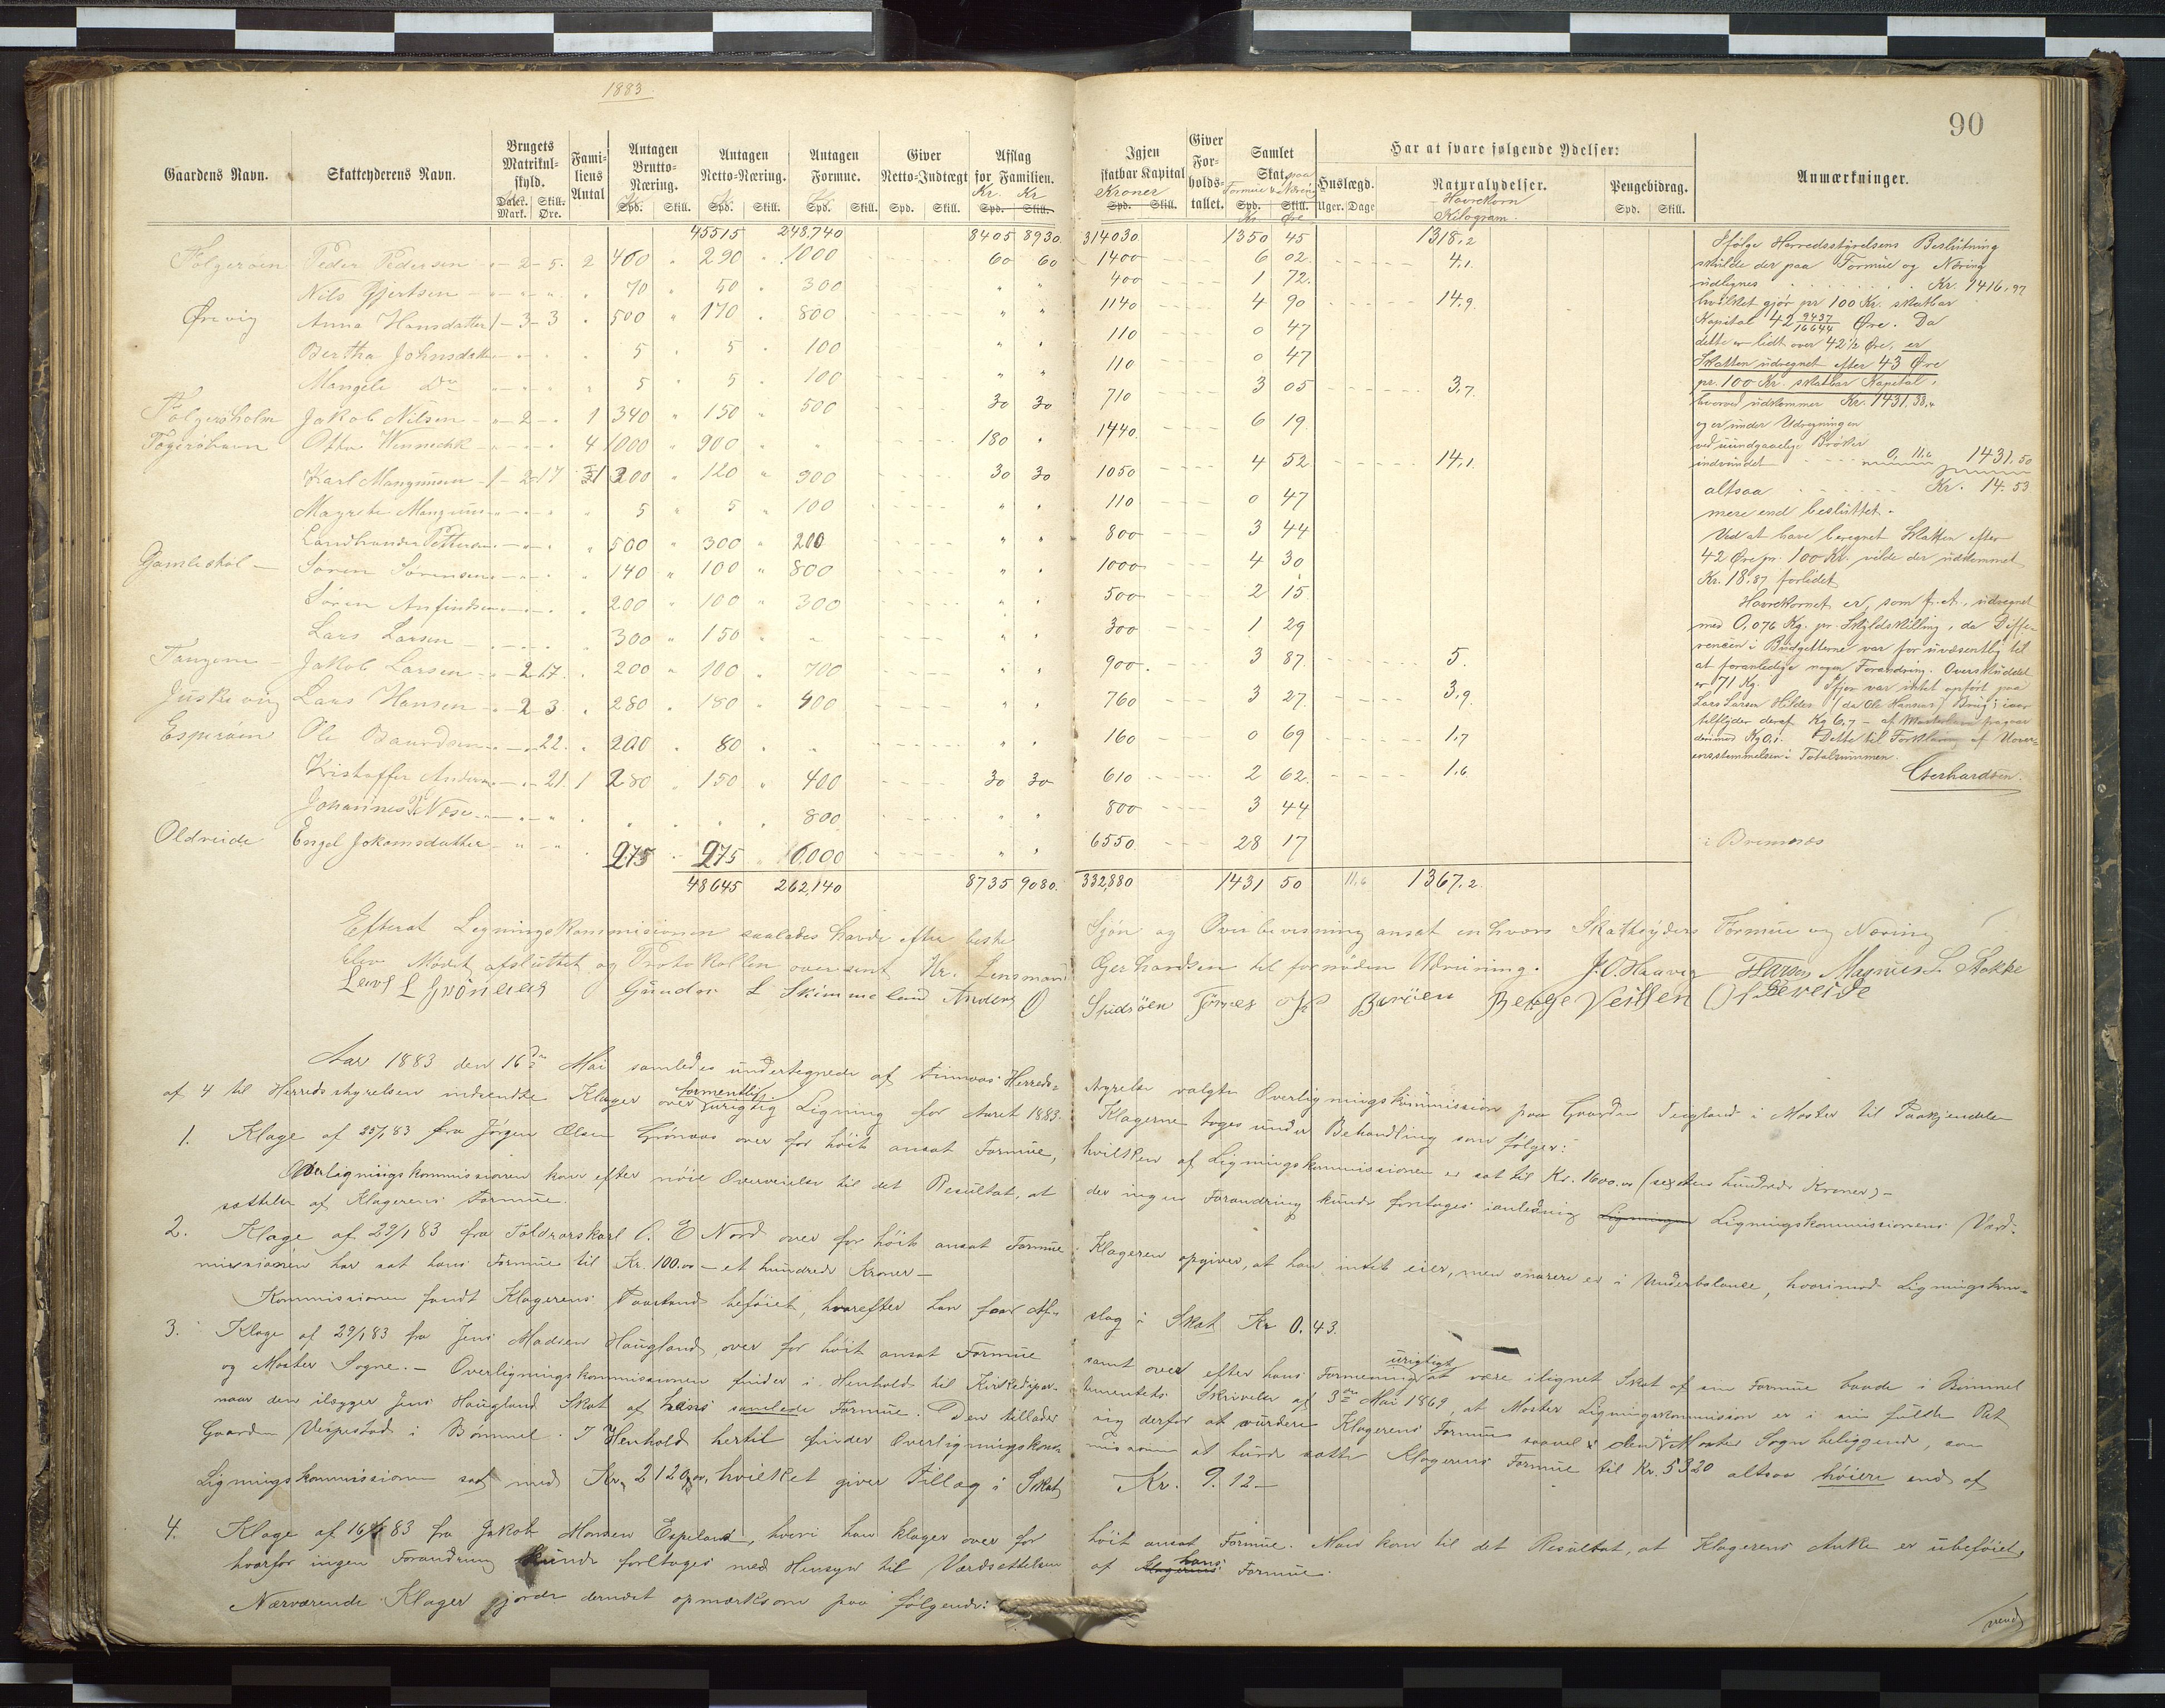 1883
90
Gaardens Navn. Skatteyderens Navn. Brugets Matrikul-skyld. Daler. Mark. Skill. Øre. Familiens Antal Antagen Brutto-Næring. Spd. Skill. Antagen Netto-Næring. Spd. Skill. Antagen Formue. Spd. Skill. Giver Netto-Indtægt Spd. Skill. Afslag for Familien. Kr. Kr Spd. Skill. Igjen skatbar Kapital Kroner Spd. Skill. Giver Forholdstallet. Samlet Skat. paa Formue & Næring Spd. Skill. Kr. Øre Har at svare følgende Ydelser: Huslægd. Uger. Dage Naturalydelser. Havrekorn Kilogram. Pengebidrag. Spd. Skill. Anmærkninger.
45515 248.740 8405 8930 314030 1350 45 1318,2
Følgerøen Peder Pedersen 2 5. 2 400 290 1000 60 60 1400 6 02 4,1.
Nils Gjertsen 70 50 300 400 1 72.
Ørevig Anna Hansdatter 1 3 3 500 170 800 1140 4 90 14,9.
Bertha Johnsdatter 5 5 100 110 0 47
Mangele Do 5 5 100 110 0 47
Følgerøholm Jakob Nilsen 2 1 340 150 500 30 30 710 3 05 3,7.
Otto Wennechk 4 1000 900 180 1440 6 19
Karl Mangnusen 1 2 17 1 300 120 900 30 30 1050 4 52 14,1.
Magrete Mangnus 5 5 100 110 0 47
Landhandler Pettersen 500 300 200 800 3 44
Gamleskol Søren Sørensen 140 100 800 1000 4 30
Søren Anfindsen 200 100 300 500 2 15
Lars Larsen 300 150 300 1 29
Tangene Jakob Larsen 2 17. 200 100 700 900 3 87. 5.
Juskevig Lars Hansen 2 3 280 180 400 760 3 27. 3,9.
Esperøen Ole Baardsen 22. 200 80 160 0 69 1,7
Kristoffer Anders 21. 1 280 150 400 30 30 610 2 62. 1,6
Johannes Næse 800 800 3 44
Oldreide Engel Jokomsdatter 275 275 6,000 6550 28 17 i Bremnæs
48645 262,140 8735 9080. 332,880 1431 50 11,6 1367,2
Ifølge Herredsstyrelsens Beslutning
skulde der paa Formue og Næring
udlignes Kr. 1416,97
hvilket gjør pr 100 Kr. skatbar
Kapital 42 9437/16644 Øre. Da
dette er lidt over 42 1/2 Øre, er
Skatten udregnet efter 43 Øre
pr. 100 Kr. skatbar Kapital,
hvorved udkommer Kr. 1431,38,4
og er under Udregningen
ved uundgaaelige Brøker
indvundet 0, 11,6 1431,50
altsaa Kr. 14. 53
mere end besluttet.
Ved at have beregnet Skatten efter
42 Øre pr. 100 Kr. vilde der udkommet
Kr. 18.87 forlidet
Havrekornet er, som f. A., udregnet
med 0,076 Kg. pr. Skyldskilling, da Diffe-
rencen i Budgetterne var for uvæsentlig til
at foranledige nogen Forandring. Overskuddet
er 71 Kg. Ifjor var intet opført paa
Lars Larsen Hilder (da Ole Hansens) Brug; iaar
tilflyder deraf Kg 6,7 – af
derimod Kg 0,1. Dette til Forklaring af Uover-
ensstemmelsen i Totalsummen.
Gerhardsen.
Efterat Ligningskommissionen saaledes havde efter beste Skjøn og Overbevisning ansat enhvers Skatteyders Formue og Næring
blev Mødet afsluttet og Protokollen oversent Hr. Lensmand Gerhardsen til fornøden Udregning. J. O. Haavig Magnus L. Stokke
Lars L Grönaas Gunder L Skimmeland Anders O Spidsöen
Aar 1883 den 16de Mai samledes undertegnede af Finnaas Herreds- styrelse valgte Overligningskommission paa Gaarden Teigland i Moster til Paakjendelse
af 4 til Herredsstyrelsen indsendte Klager over formentlig urigtig Ligning for Aaret 1883. Klagerne toges under Behandling som følger:
1. Klage af 25/1 83 fra Jørgen Olsen Grönaas over for høit ansat Formue, hvilken af Ligningskommissionen er sat til Kr. 1600.00 (sexten hundrede Kroner) –
Overligningskommissionen kom efter nøie Overveielse til det Resultat, at der ingen Forandring kunde foretages i anledning Ligningskommissionens Værd-
sættelse af Klagerens Formue.
2. Klage af 29/1 83 fra Føderaadskarl O. E Nord over for høit ansat Formue. Klageren opgiver, at han intet eier, men snarere er i Underbalance, hvorimod Ligningskom-
missionen har sat hans Formue til Kr. 100.00 – et hundrede Kroner –
Kommissionen fandt Klagerens Paastand beføiet, hvorefter han faar Af- slag i Skat Kr 0.43.
3. Klage af 29/1 83 fra Jens Madsen Haugland, over for høit ansat Formue samt over efter hans Formening urigtigt at være ilignet Skat af sin Formue baade i Bömmel
og Moster Sogne. – Overligningskommissionen finder i Henhold til Kirkedepar- tementets Skrivelse af 3die Mai 1869, at Moster Ligningskommission er i sin fulde Ret
naar den ilægger Jens Haugland Skat af hans samlede Formue. Den tillader sig derfor at vurdere Klagerens Formue saavel den i Moster Sogn beliggende, som
Gaarden Vespestad i Bömmel. I Henhold hertil finder Overligningskom- missionen at burde sætte Klagerens Formue til Kr. 5320 altsaa høiere end af
Ligningskommissionen sat med Kr. 2120,00, hvilket giver Tillæg i Skat Kr. 9.12 –
4. Klage af 16/1 83 fra Jakob Monsen Espeland, hvori han klager over for høit ansat Formue. Man kom til det Resultat, at Klagerens Anke er ubeføiet,
hvorfor ingen Forandring kunde foretages med Hensyn til Værdsættelsen af hans Formue.
Nærværende Klager gjorde derudet opmærksom paa følgende:
vend